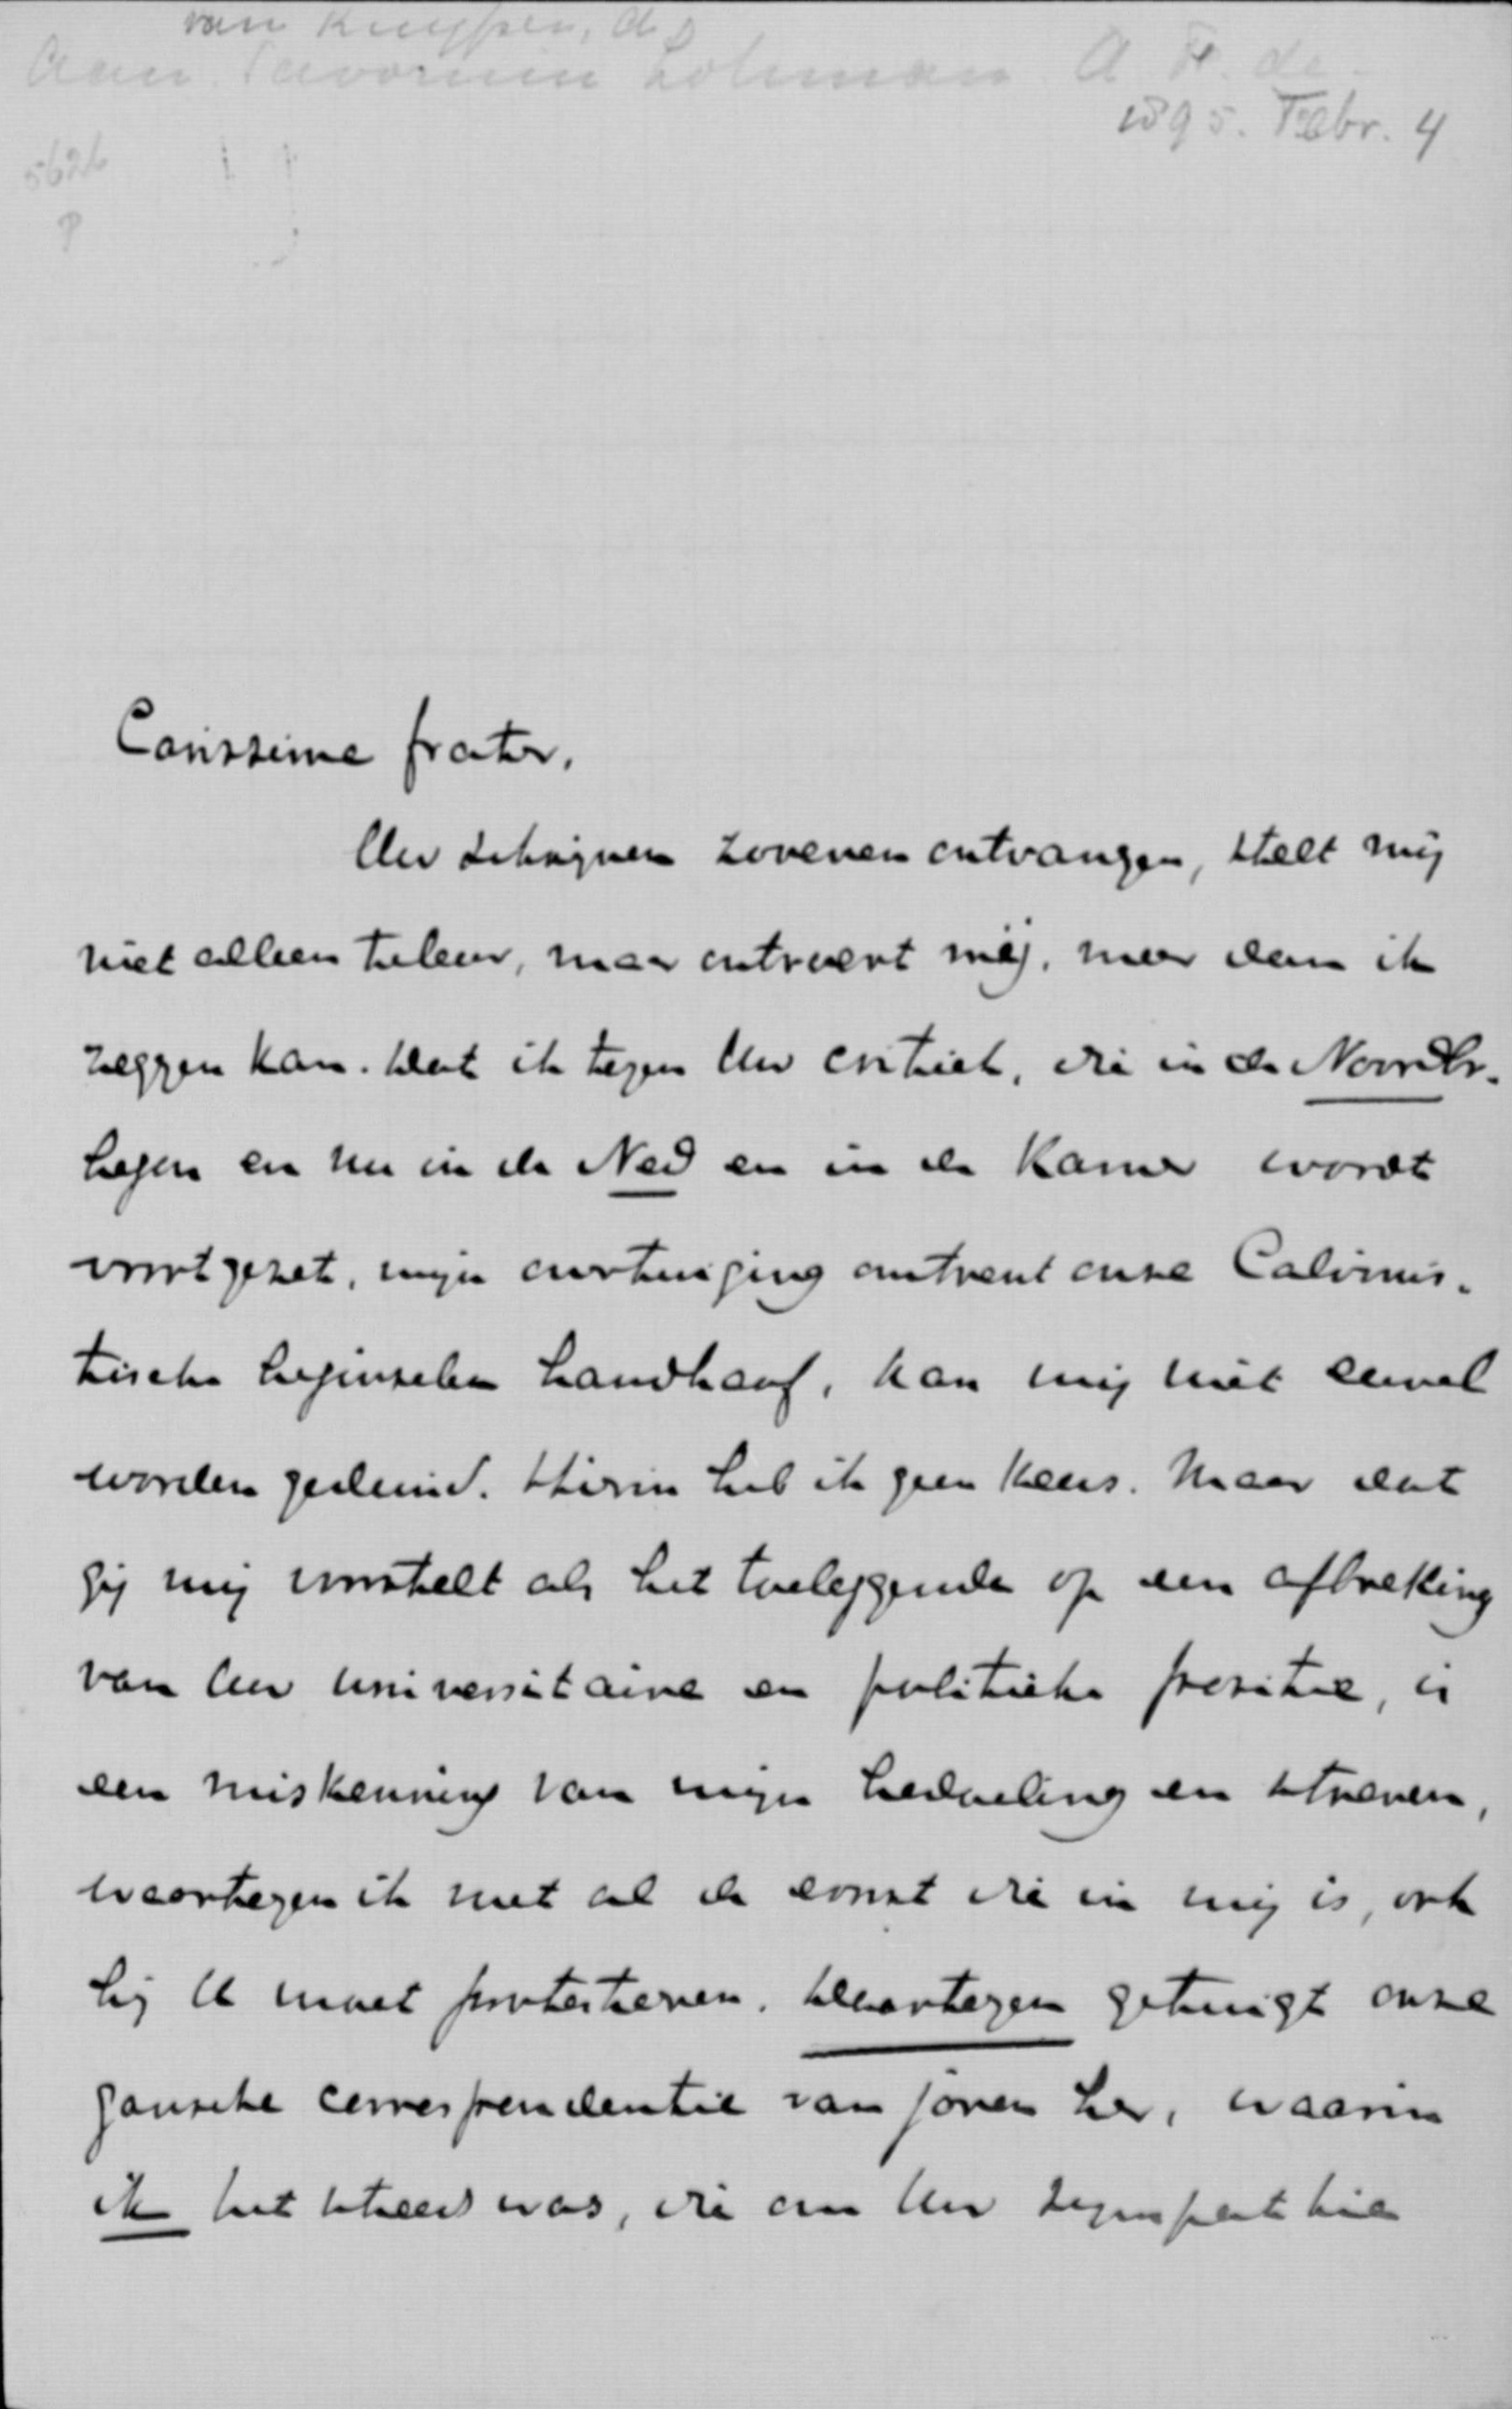 van Kuyper, A
Aan Savornin Lohman A F. de
1895. Febr. 4
5626
P
Carissime frater,
Uw schrijven zoveven ontvangen, stelt mij
niet alleen teleur, maar ontroert mij, meer dan ik
zeggen kan. Dat ik tegen Uw critiek, die in de Noordbr.
begon en nu in de Ned en in de Kamer wordt
voortgezet, mijn overtuiging omtrent onze Calvinis-
tische beginselen handhaaf, kan mij niet euvel
worden geduid. Hierin heb ik geen keus. Maar dat
gij mij voorstelt als het toeleggende op een afbreking
van Uw universitaire en politieke positie, is
een miskenning van mijn bedoeling en streven,
waartegen ik met al de ernst die in mij is, ook
bij U moet protesteren. Daartegen getuigt onze
gansche correspondentie van jaren her, waarin
ik het steeds was, die om Uw sympathie